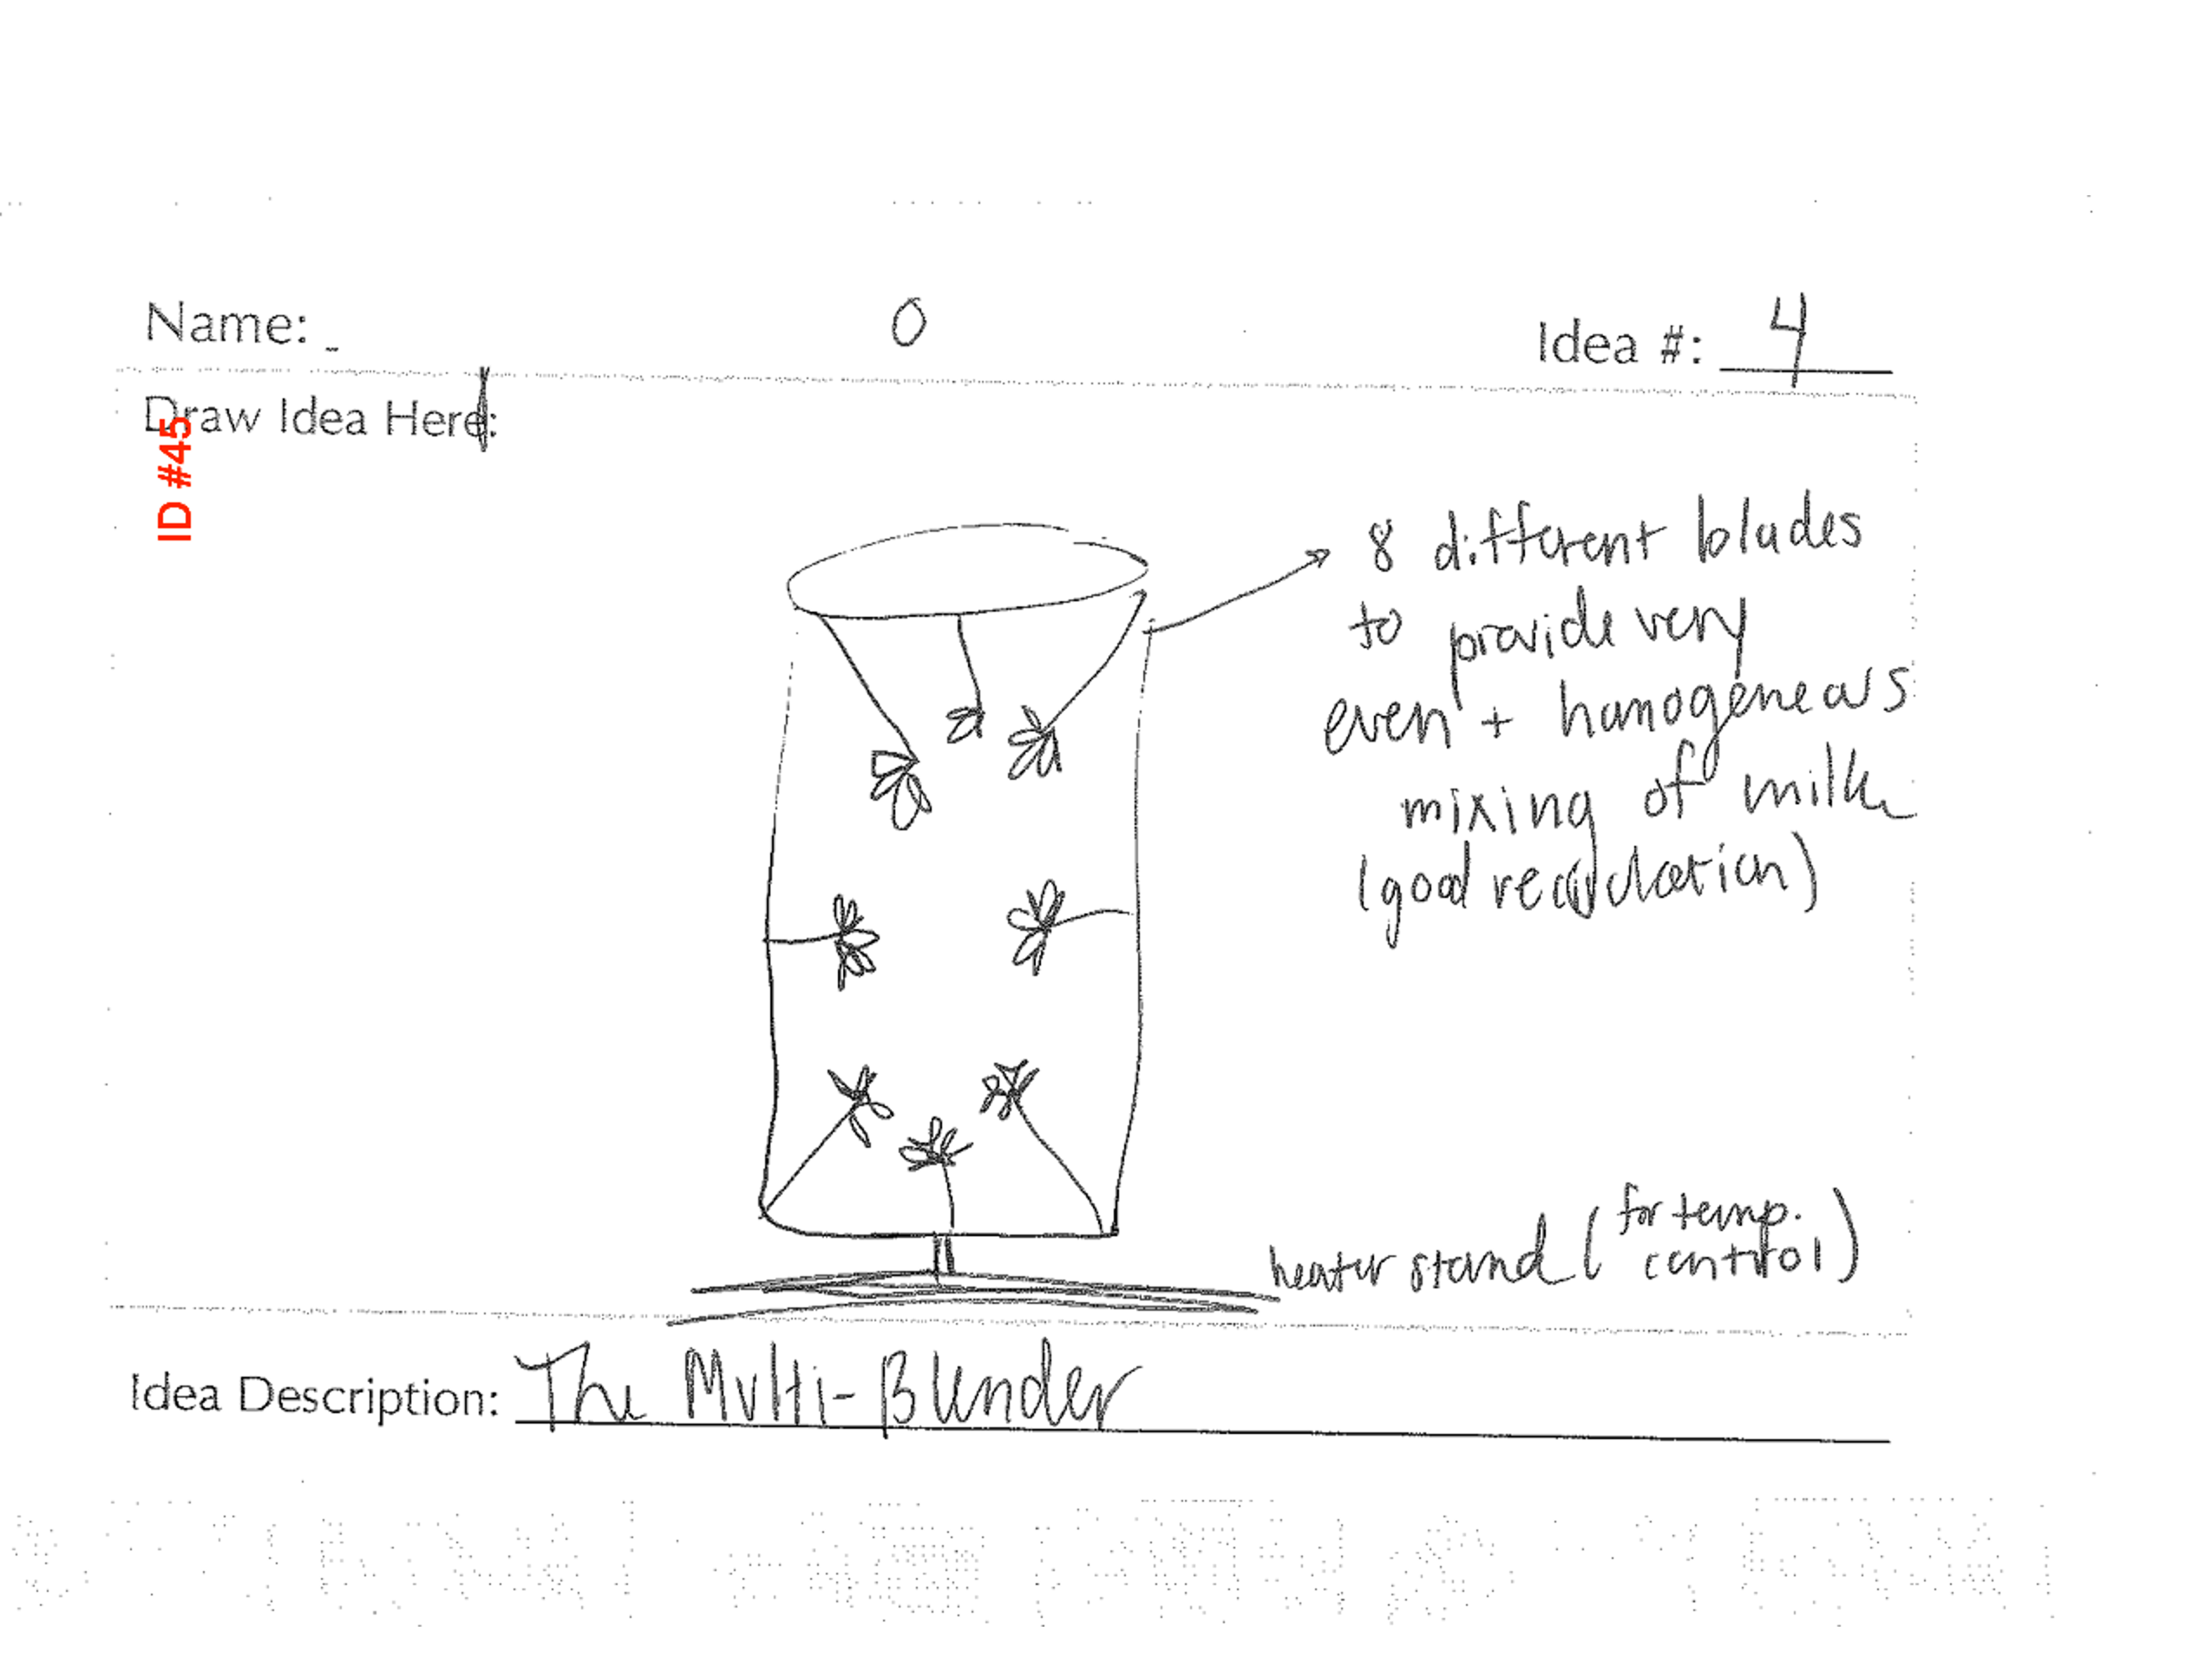 Name:
O
Idea #: 4
Draw Idea Here:
ID #45
8 different blades
to provide very
even + homogeneous
mixing of milk
(good recirculation)
heater stand (for temp.
control)
Idea Description: The Multi-Blender